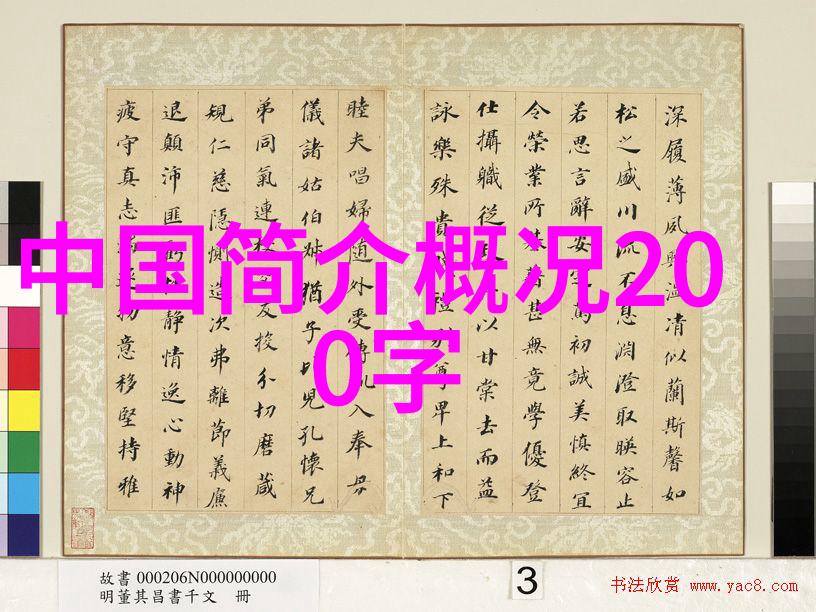 中国简介概况20
0字
深履薄夙興温凊似蘭斯馨如
松之盛川流不息淵澄取暎容止
若思言辭安定篤初誠美慎終宜
令榮業所基籍甚無竟學優登
仕攝職從以甘棠去而益
詠樂殊貴禮別尊卑上和下
睦夫唱婦隨外受傅訓入奉母
儀諸姑伯叔猶子比兒孔懷兄
弟同氣連枝交友投分切磨箴
規仁慈隱惻造次弗離節義廉
退顛沛匪虧性靜情逸心動神
疲守真志滿逐物意移堅持雅
故書 000206N000000000
明董其昌書千文 冊
3
书法欣赏 www.yac8.com